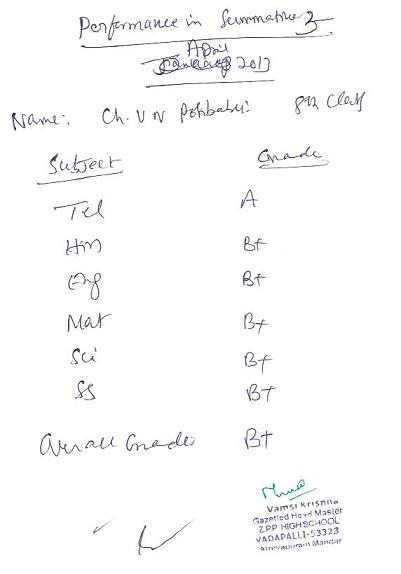 Performance in Summative 3
April
2013
Name:. Ch. V N 8th Class
Subject Grade
Tel A
Hin B+
Eng B+
Mat B+
Sci B+
SS B+
Overall Grade: B+
Vamsi Krishna
Gazetted Head Master
ZPP HIGH SCHOOL
VADAPALLI-53323
Atreyapuram Mandal